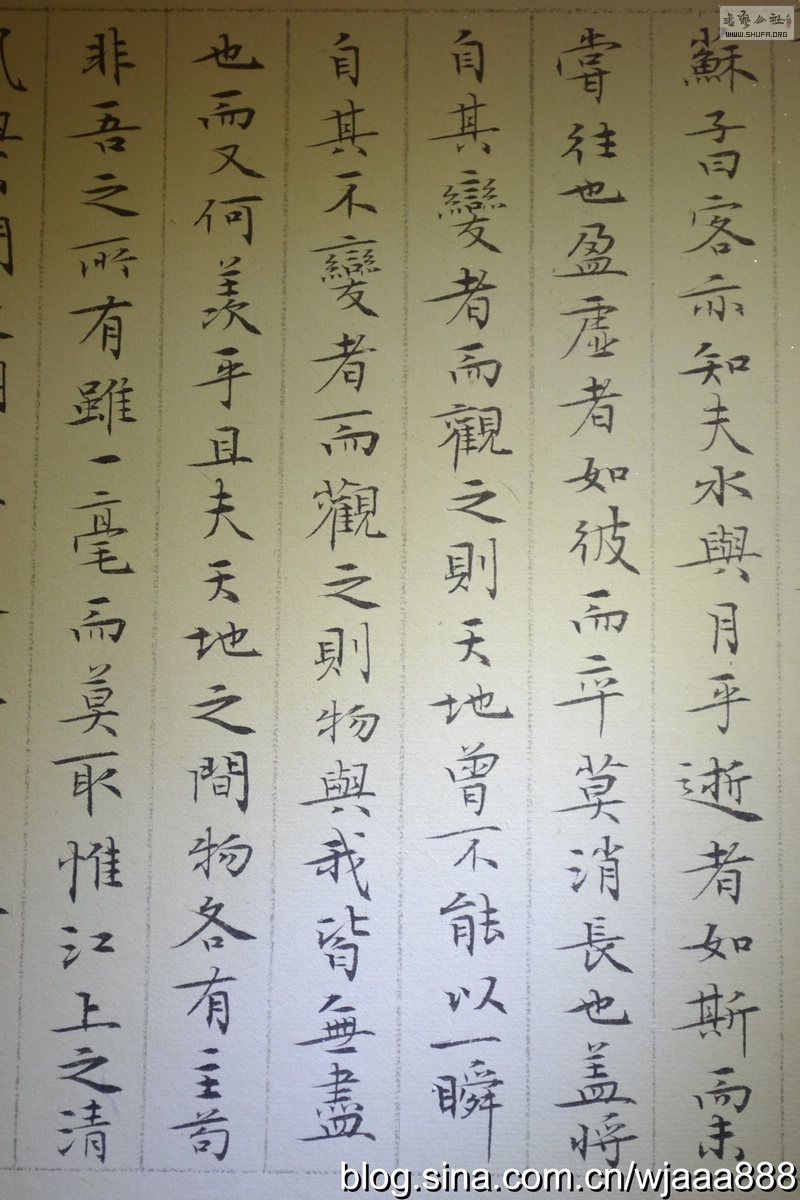 蘇子曰客亦知夫水與月乎逝者如斯而未
嘗往也盈虛者如彼而卒莫消長也盖將
自其變者而觀之則天地曾不能以一瞬
自其不變者而觀之則物與我皆無盡
也而又何羨乎且夫天地之間物各有主苟
非吾之所有雖一毫而莫取惟江上之清
WWW.SHUFA.ORG
blog.sina.com.cn/wjaaa888